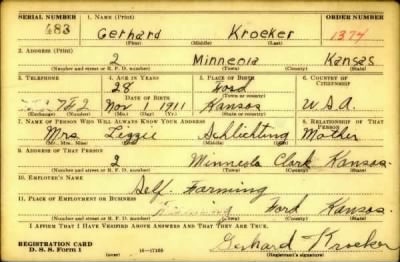 SERIAL NUMBER 1. NAME (Print) ORDER NUMBER
483 Gerhard Kroeker 1374
(First) (Middle) (Last)
2. ADDRESS (Print)
2 Minneola Kansas
(Number and street or R. F. D. number) (Town) (County) (State)
3. TELEPHONE 4. AGE IN YEARS 5. PLACE OF BIRTH 6. COUNTRY OF CITIZENSHIP
28 Ford
DATE OF BIRTH (Town or county)
7F2 Nov 1 1911 Kansas U.S.A.
(Exchange) (Number) (Mo.) (Day) (Yr.) (State or country)
7. NAME OF PERSON WHO WILL ALWAYS KNOW YOUR ADDRESS 8. RELATIONSHIP OF THAT PERSON
Mrs. Lizzie Schlichting Mother
(Mr., Mrs., Miss) (First) (Middle) (Last)
9. ADDRESS OF THAT PERSON
2 Minneola Clark Kansas.
(Number and street or R. F. D. number) (Town) (County) (State)
10. EMPLOYER'S NAME
Self. Farming
11. PLACE OF EMPLOYMENT OR BUSINESS
Ford Kansas.
(Number and street or R. F. D. number) (Town) (County) (State)
I AFFIRM THAT I HAVE VERIFIED ABOVE ANSWERS AND THAT THEY ARE TRUE.
REGISTRATION CARD
D. S. S. Form 1 (over) 16—17105 Gerhard Kroeker
(Registrant's signature)